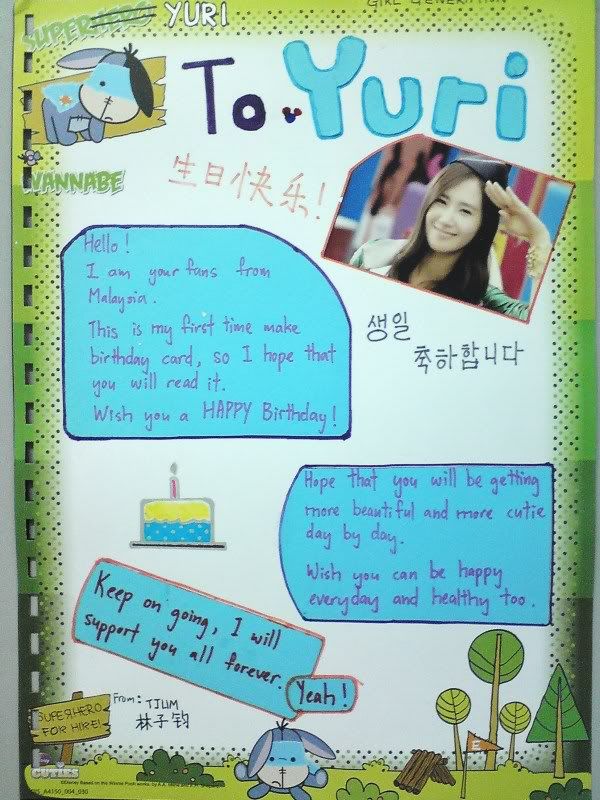 SUPERHERO YURI
GIRL GENERATION
To Yuri
WANNABE
生日快乐!
Hello!
I am your fans from
Malaysia.
This is my first time make
birthday card, so I hope that
you will read it.
Wish you a HAPPY Birthday!
생일
축하합니다
Hope that you will be getting
more beautiful and more cutie
day by day.
Wish you can be happy
everyday and healthy too.
Keep on going, I will
support you all forever.
Yeah!
From: TJUM
林子钧
SUPERHERO
FOR HIRE!
E
CUTIES